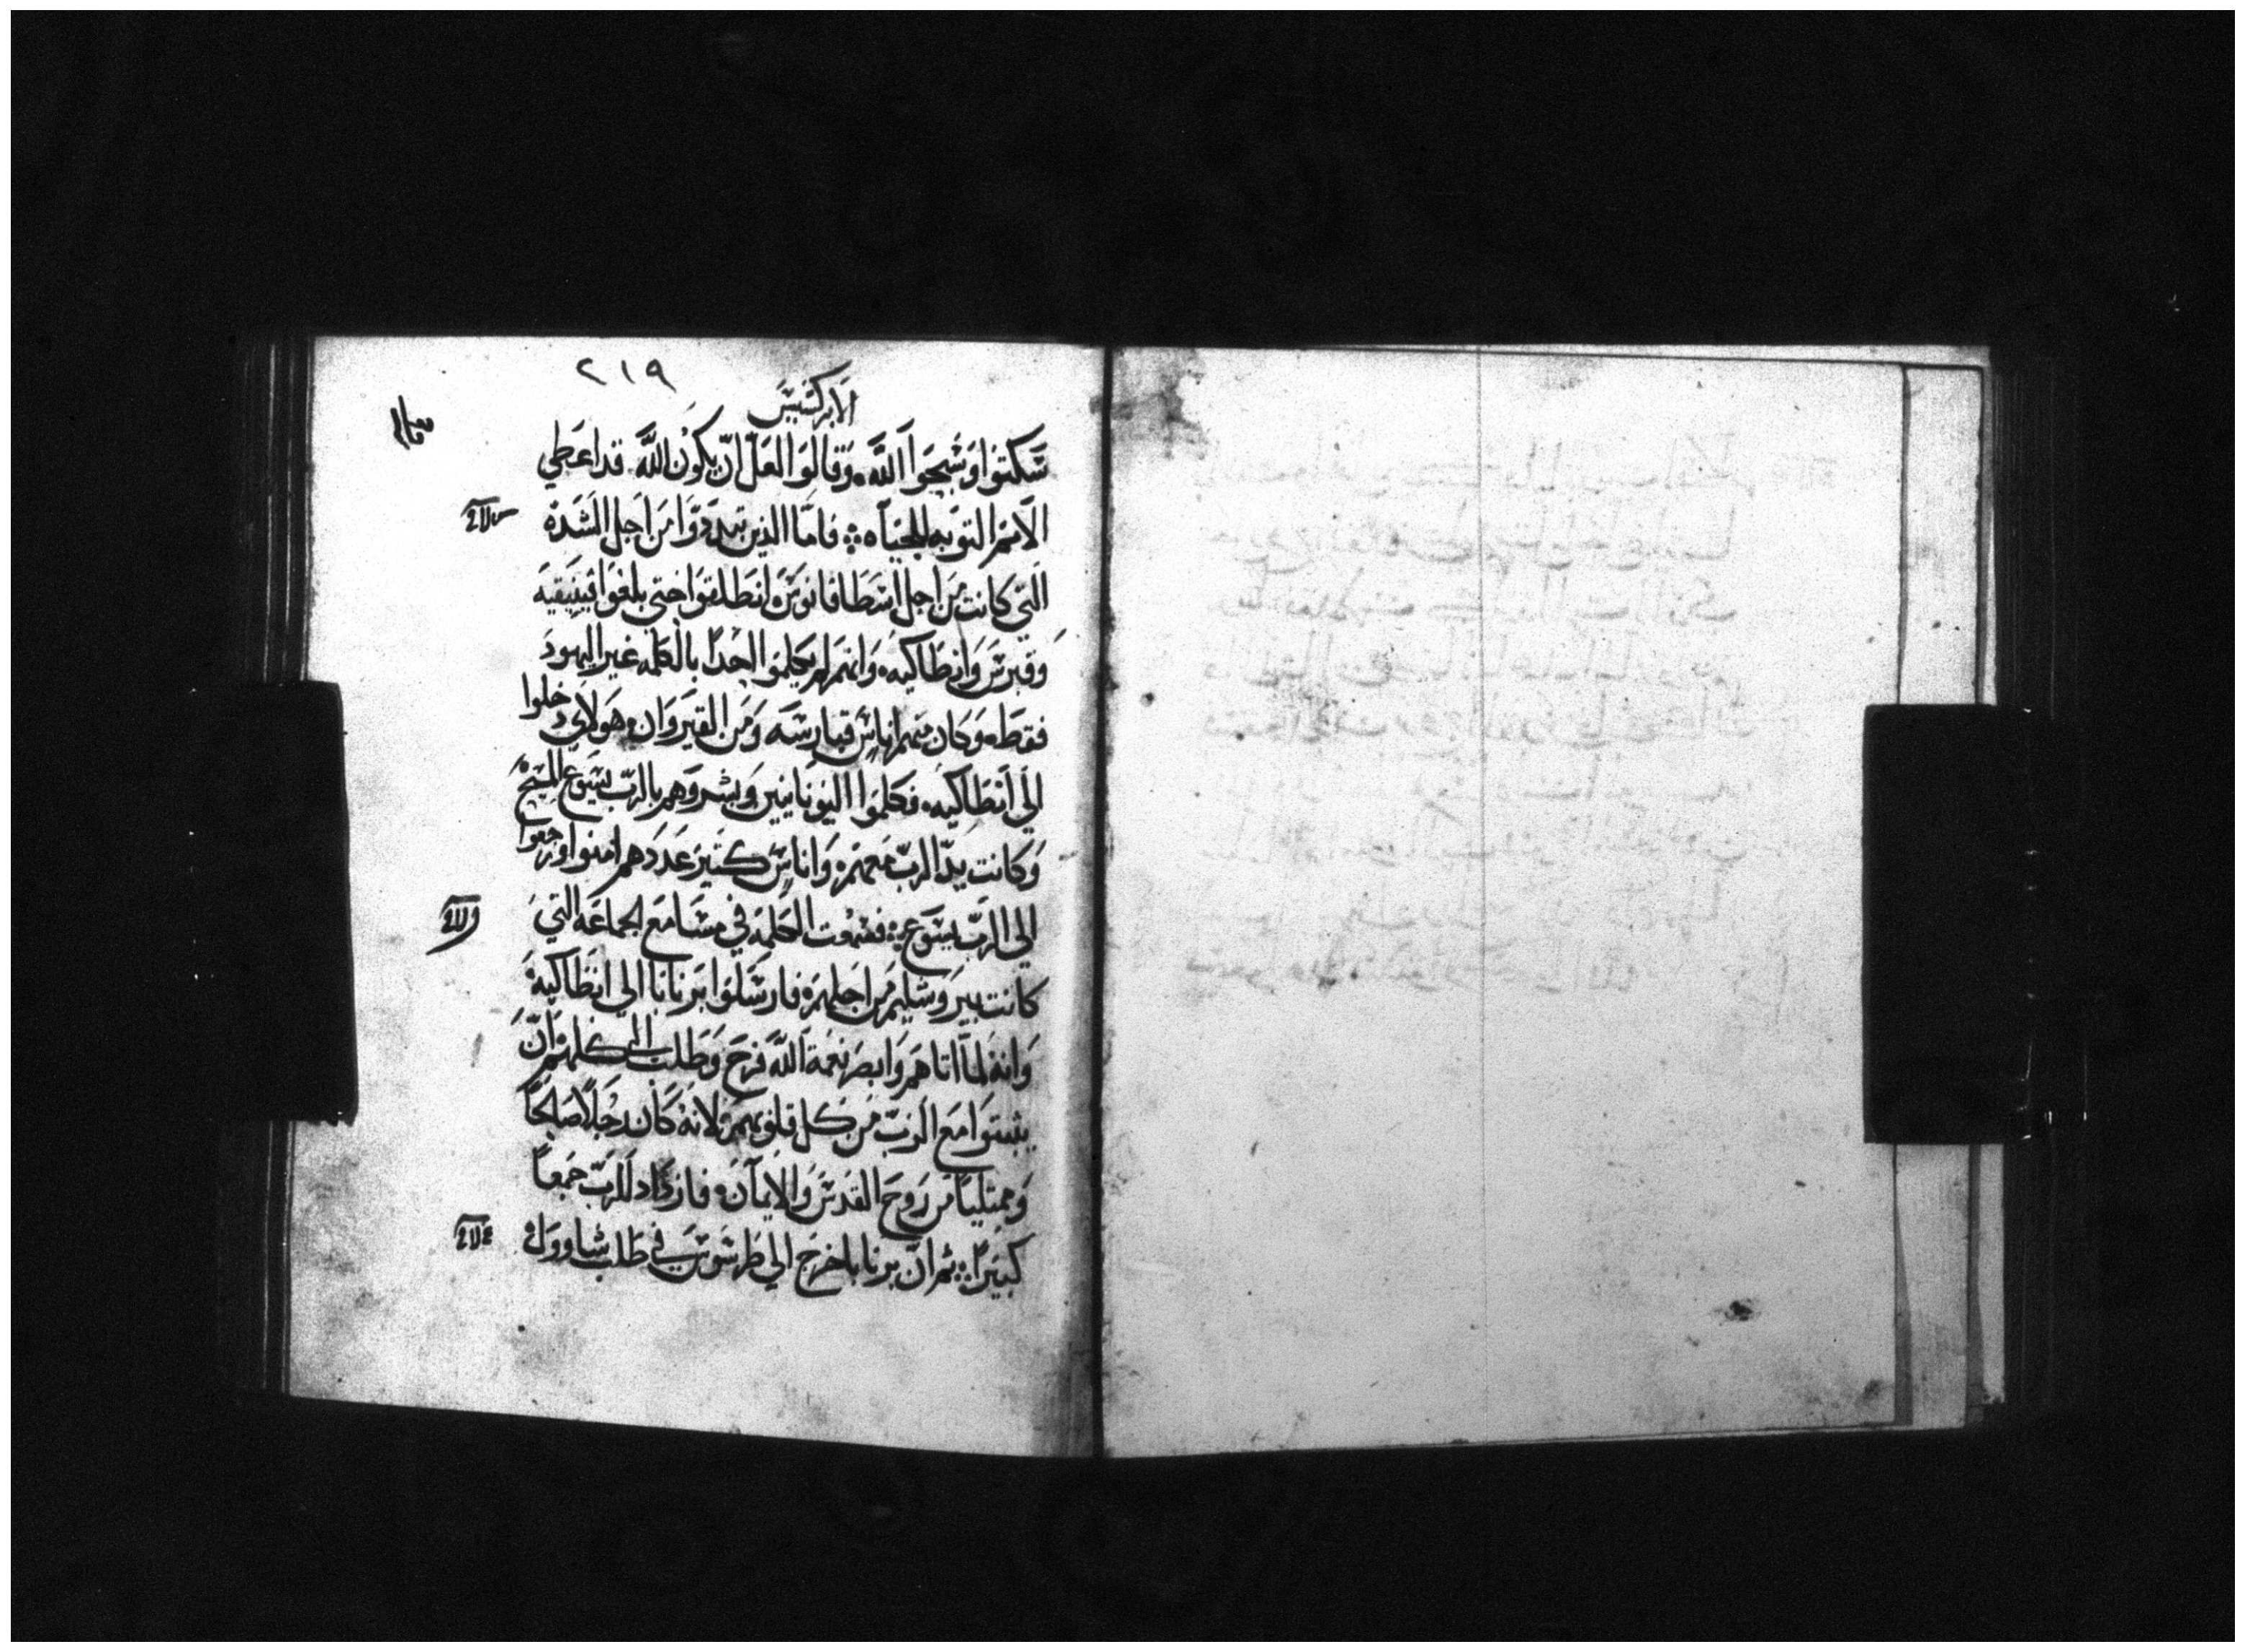 ٢١٩
الابركسيس
سَكتوا وَسَبحَوا اللَّه؞ وَقالوَا لعَلّ انّ يكوُن اللَّه قداعَطي
الامَم التوَبه للحَيَاه ؞ فامَّا الذين تبَددوَّا مَن اجَل الشدَة
التي كانت مَن اجل اسَطَافانوسَ انطَلقوَا حَتي بلغوَا فينيقيَه
وَقبرسَ وَانطَاكيه؞ وَانهَم لم يكلموَا احَدًا بالكلمه غير اليهودَ
فقطَ؞ وَكان منهَم اناسَ قبارسَه وَمَن القيروَان؞ هَولاي دخلوا
الي اَنطَاكيه؞ فكلموَا اليوَنانيين وَبشروَهم بالربّ يسَوَع المسَيح
وَكانت يدّ الربّ مَعهَم؞ وَاناسَ كثيرَ عَددَهم امنوا ورَجعوا
الي الربّ يسَوَع ؞ فسَمعَت الكلمَة في مسَامَع الجماعَه التي
كانت بيروَشليم مَن اجَلهم؞ فارسَلوَا بَرنابا الي انطَاكيه
وَانهَ لمَّا اتاهَم وَابصَر نعمَة اللَّه فرحَ وَطَلب الي كلهَم انّ
يثبتوَا مَع الربّ مَن كل قلوَبهمَ؞ لانه كَان رجَلاً صَالحاً
وَممتلياً مَن رَوحَ القدسَ وَالايمَان؞ فازدَاد للربّ جَمعاً
كبيَراً ؞ ثم انّ برنابا خرجَ الي طَرسَوسَ في طَلب شاووَل